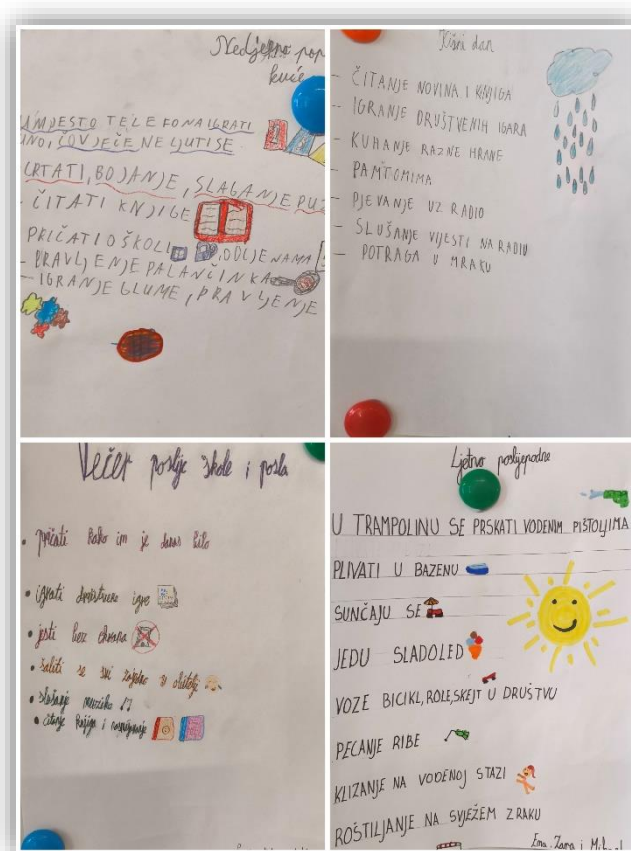 Nedjeljno pop
kuće
UMJESTO TELEFONA IGRATI
UNO, ČOVJEČE NE LJUTI SE
CRTATI, BOJANJE, SLAGANJE PUZ
- ČITATI KNJIGE
PRIČATI O ŠKOLI
- PRAVLJENJE PALAČINKA
- IGRANJE GLUME, PRAVLJENJE
Kišni dan
- ČITANJE NOVINA I KNJIGA
- IGRANJE DRUŠTVENIH IGARA
- KUHANJE RAZNE HRANE
- PANTOMIMA
- PJEVANJE UZ RADIO
- SLUŠANJE VIJESTI NA RADIU
- POTRAGA U MRAKU
Večer poslje škole i posla
• pričati kako im je danas bilo
• igrati društvene igre
• jesti bez ekrana
• šaliti se svi zajedno u obitelji
• slušanje muzike
• čitanje knjiga i
Ljetno poslijepodne
U TRAMPOLINU SE PRSKATI VODENIM PIŠTOLJIMA
PLIVATI U BAZENU
SUNČAJU SE
JEDU SLADOLED
VOZE BICIKL, ROLE, SKEJT U DRUŠTVU
PECANJE RIBE
KLIZANJE NA VODENOJ STAZI
ROŠTILJANJE NA SVJEŽEM ZRAKU
Ema, Zara i